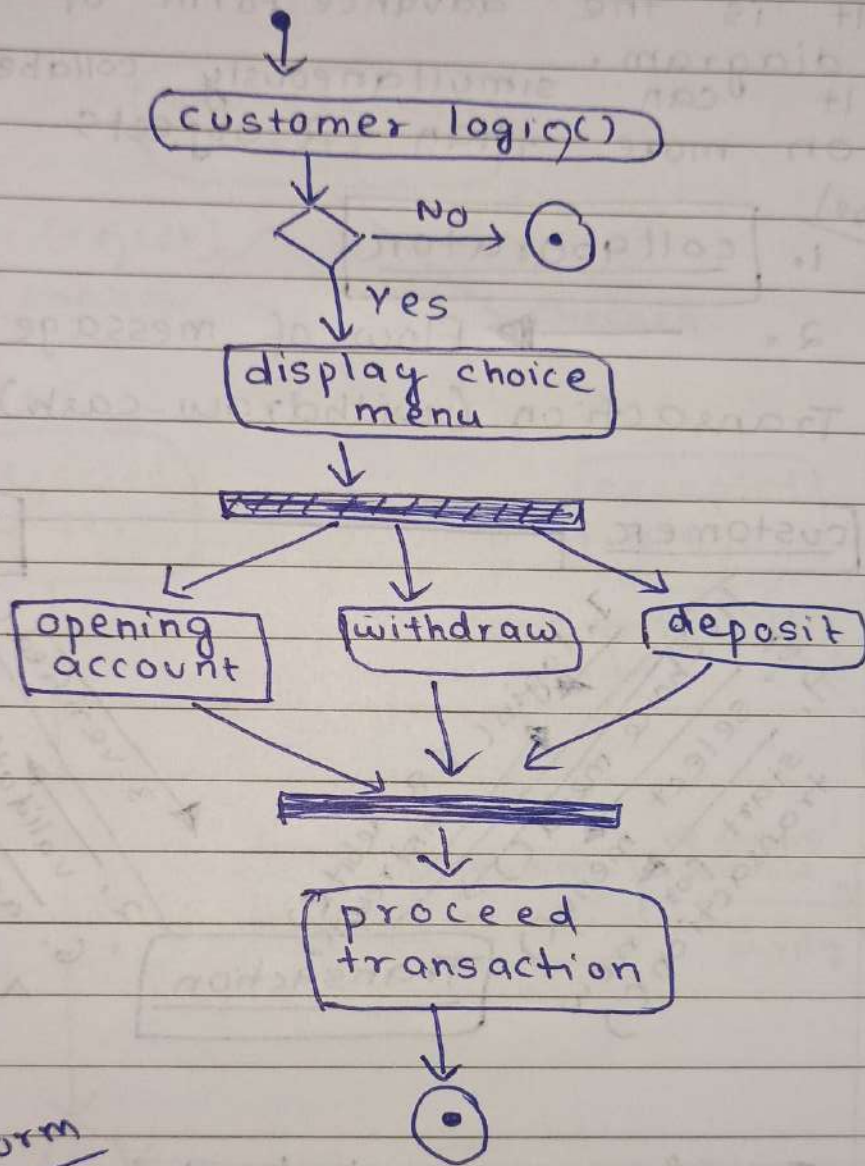 customer login()
No
Yes
display choice
menu
opening
account
withdraw
deposit
proceed
transaction